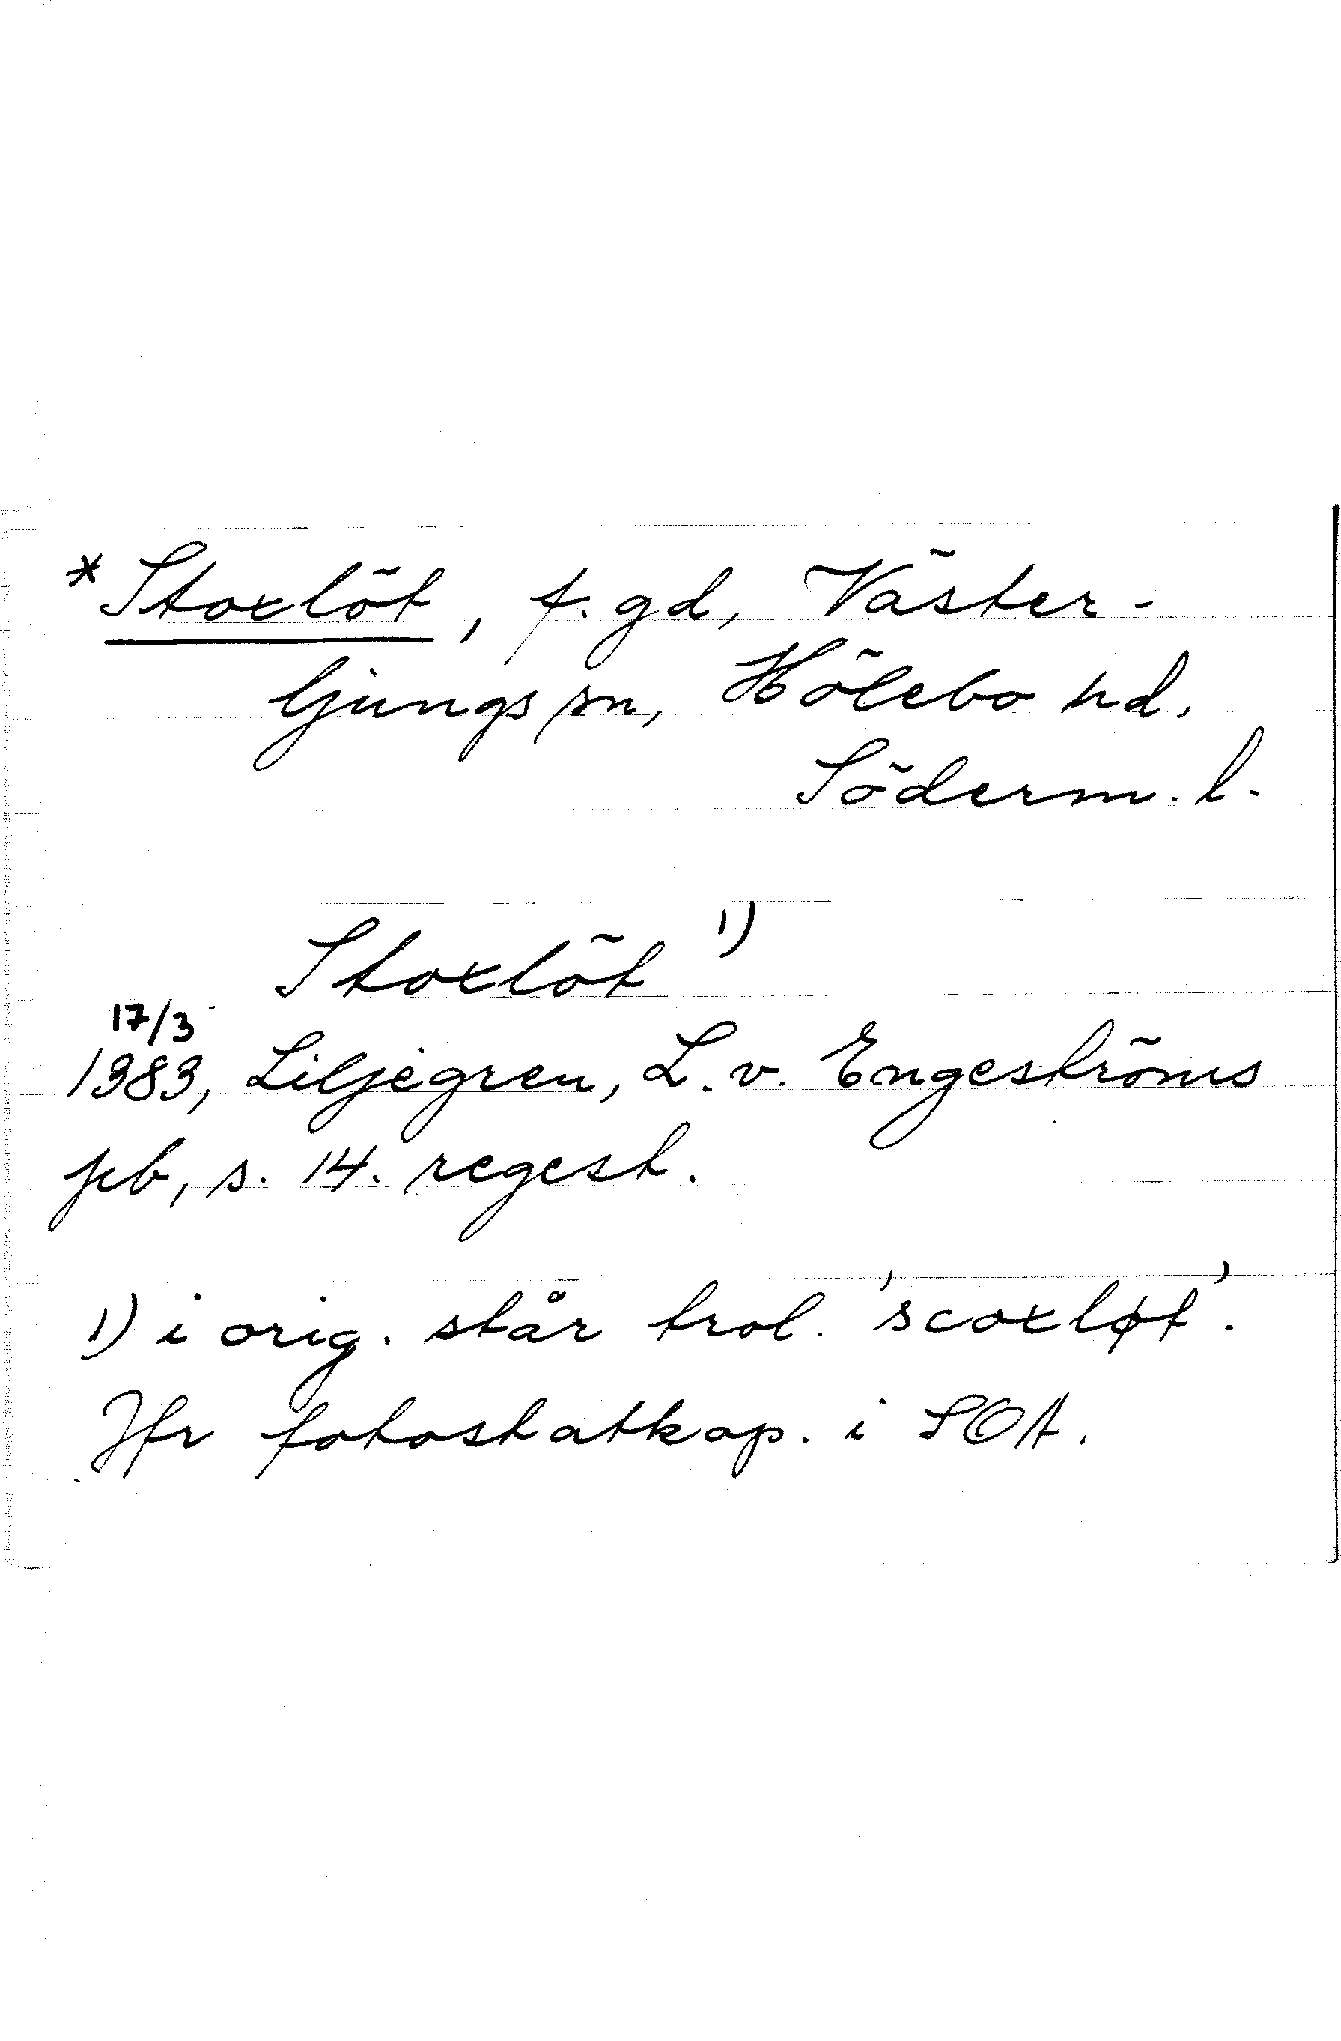 *Stoxlöt, f.gd, Väster-
ljungs sn, Hölebo hd,
Söderm. l.
Stoxlöt 1)
17/3
1383, Liljegren, L. v. Engeströms
pb, s. 14. regest.
1) i orig. står trol. 'scoxløt'.
Jfr fotostatkop. i SOA.